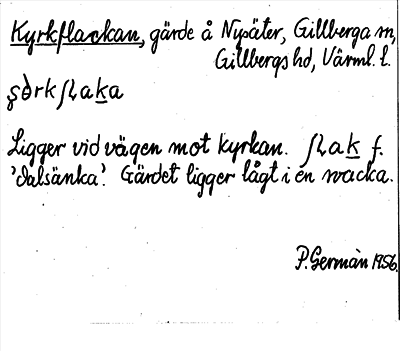 Kyrkflackan, gärde å Nysäter, Gillberga sn,
Gillbergs hd, Värml. l.
Ligger vid vägen mot kyrkan. f.
'dalsänka'. Gärdet ligger lågt i en svacka.
P. Germán 1956.